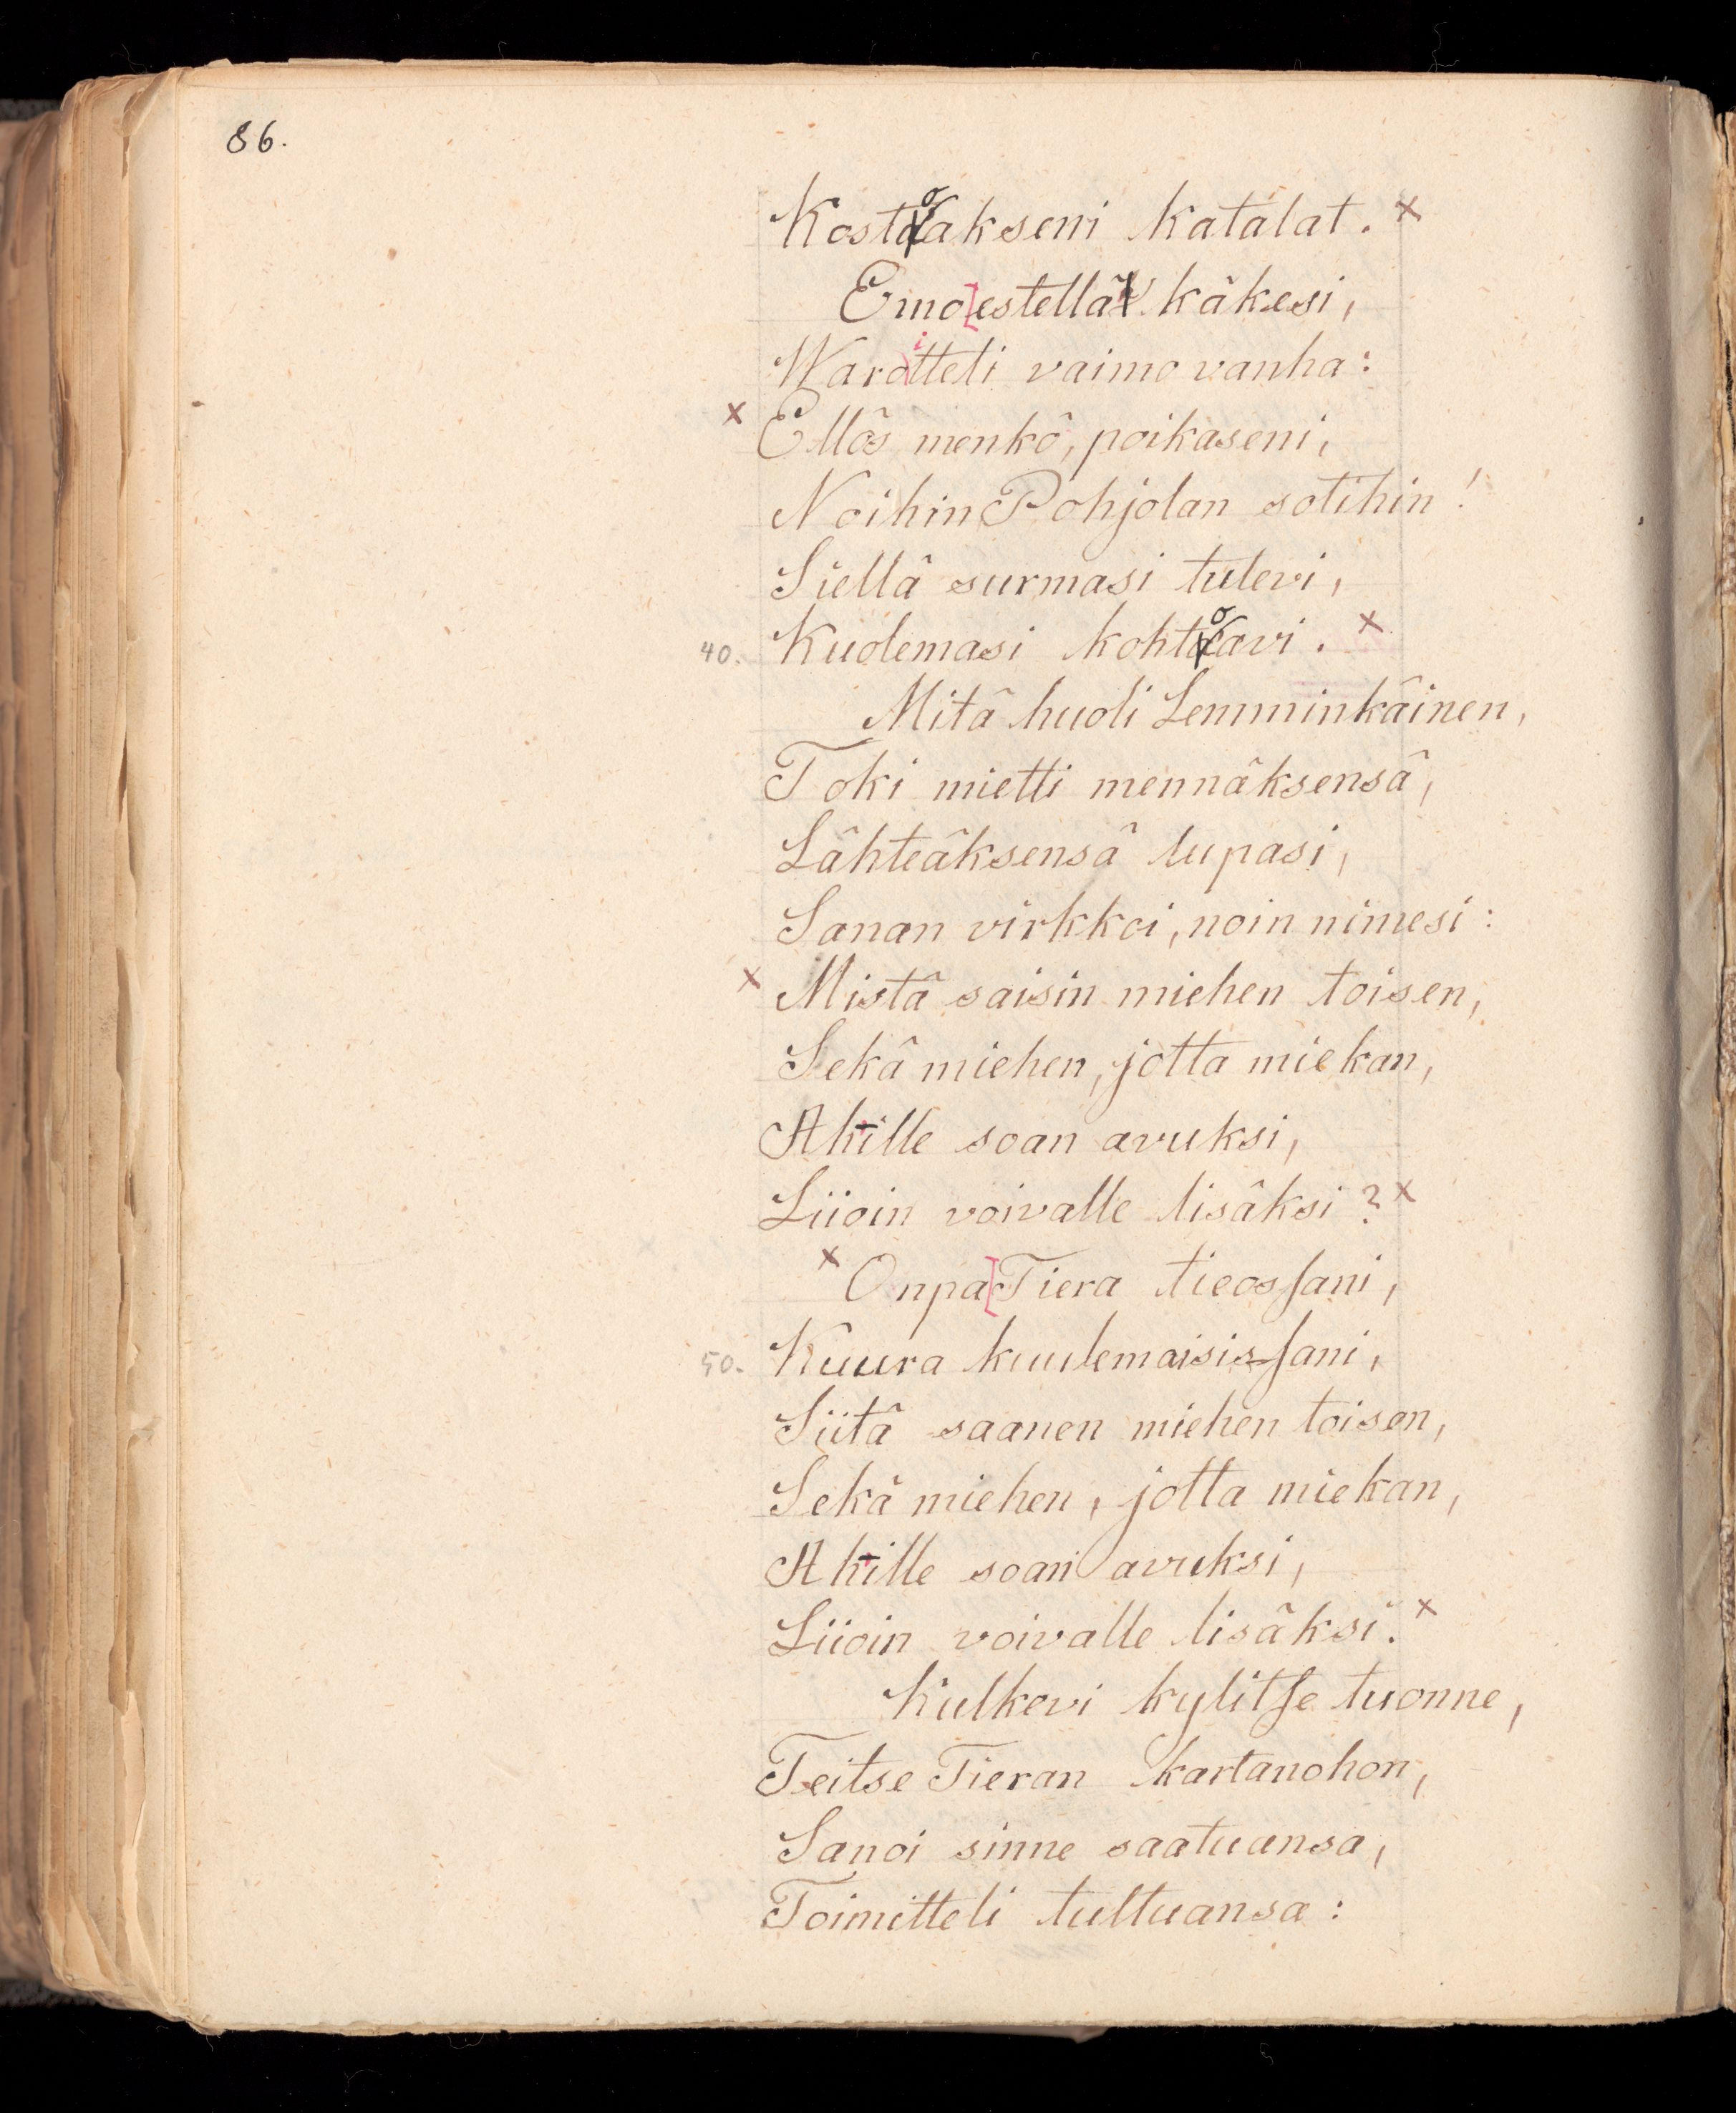 86.
Kostoakseni katalat. ×
Emo [estellä käkesi,
Waroitteli vaimo vanha:
× Ellös menkö, poikaseni,
Noihin Pohjolan sotihin!
Siellä surmasi tulevi,
40. Kuolemasi kohtoavi. ×
Mitä huoli Lemminkäinen,
Toki mietti mennäksensä,
Lähteäksensä lupasi,
Sanan virkkoi, noin nimesi:
× Mistä saisin miehen toisen,
Sekä miehen, jotta miekan,
Ahtille soan avuksi,
Liioin voivalle lisäksi? ×
× Onpa [Tiera tieossani,
50. Kuura kuulemaisissani,
Siitä saanen miehen toisen,
Sekä miehen, jotta miekan,
Ahtille soan avuksi,
Liioin voivalle lisäksi. ×
Kulkevi kylitse tuonne,
Teitse Tieran kartanohon,
Sanoi sinne saatuansa,
Toimitteli tultuansa: